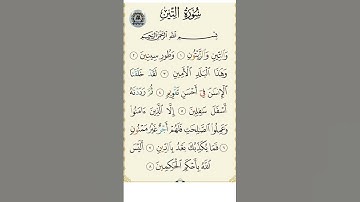 سُورَةُ التِّينِ
بِسْمِ ٱللَّهِ ٱلرَّحْمَٰنِ ٱلرَّحِيمِ
وَٱلتِّينِ وَٱلزَّيْتُونِ ١ وَطُورِ سِينِينَ ٢
وَهَٰذَا ٱلْبَلَدِ ٱلْأَمِينِ ٣ لَقَدْ خَلَقْنَا
ٱلْإِنسَٰنَ فِىٓ أَحْسَنِ تَقْوِيمٍ ٤ ثُمَّ رَدَدْنَٰهُ
أَسْفَلَ سَٰفِلِينَ ٥ إِلَّا ٱلَّذِينَ ءَامَنُوا۟
وَعَمِلُوا۟ ٱلصَّٰلِحَٰتِ فَلَهُمْ أَجْرٌ غَيْرُ مَمْنُونٍ
٦ فَمَا يُكَذِّبُكَ بَعْدُ بِٱلدِّينِ ٧ أَلَيْسَ
ٱللَّهُ بِأَحْكَمِ ٱلْحَٰكِمِينَ ٨